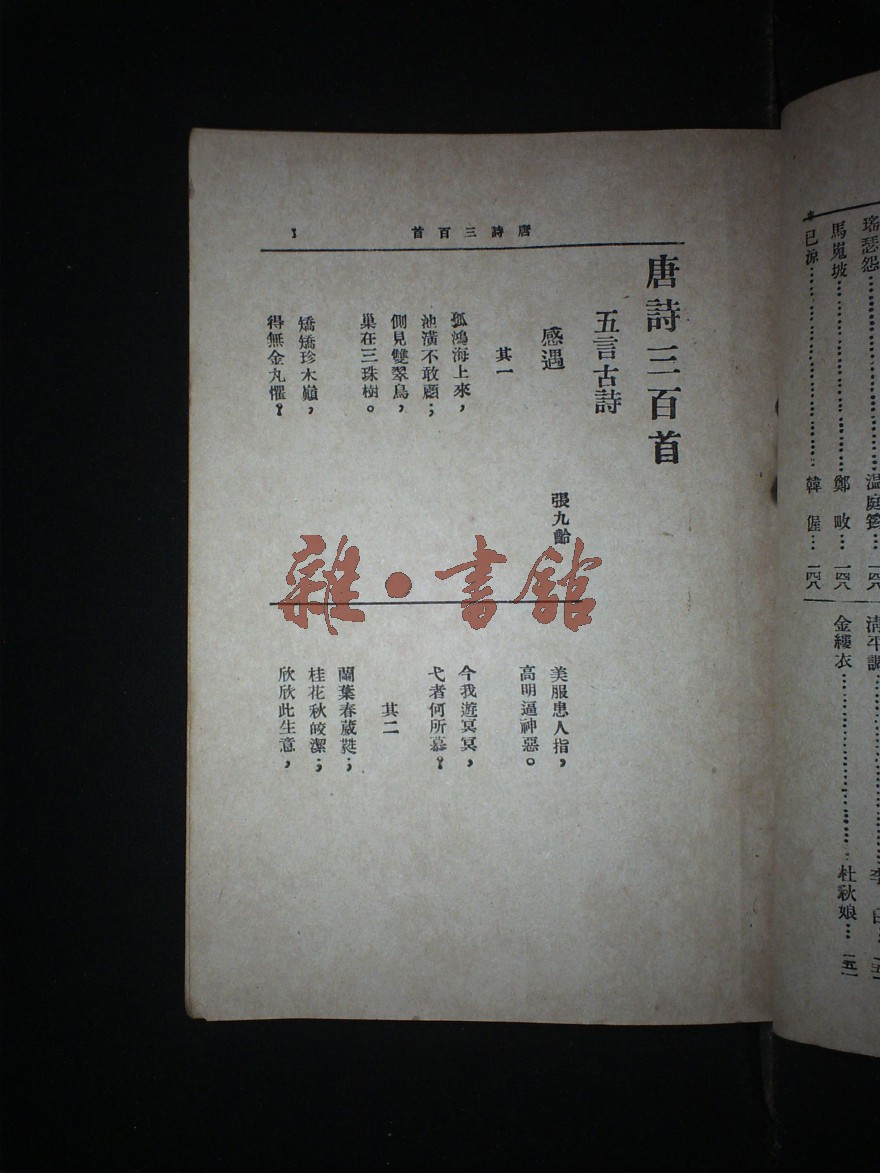 瑤瑟怨……溫庭筠…一四八
馬嵬坡……鄭畋…一四八
已涼……韓偓…一四八
金縷衣……杜秋娘…一五一
唐詩三百首
1
唐詩三百首
五言古詩
感遇
張九齡
其一
孤鴻海上來，
池潢不敢顧；
側見雙翠鳥，
巢在三珠樹。
矯矯珍木巔，
得無金丸懼？
美服患人指，
高明逼神惡。
今我遊冥冥，
弋者何所慕？
其二
蘭葉春葳蕤；
桂花秋皎潔；
欣欣此生意，
雜·書館